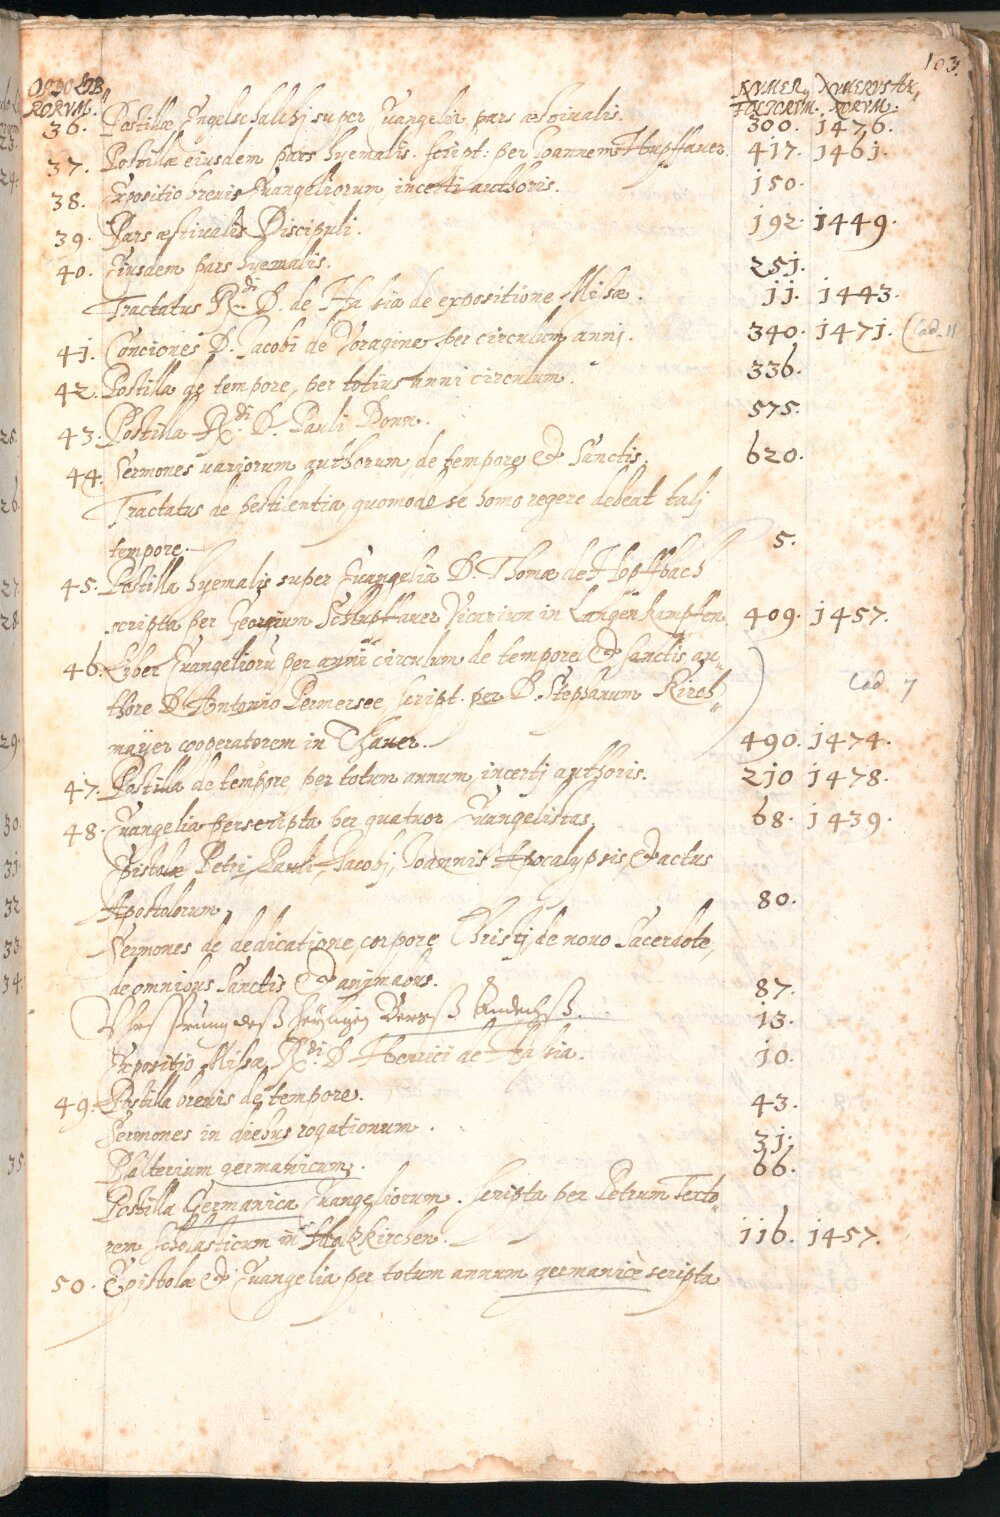 103.
ORDO LIB,, RORVM. NVMER, FOLIORVM. NVMERVS AN, NORVM.
36. Postillæ Engelschalchj super Euangelia pars æstiualis. 300. 1476.
37. Postillæ eiusdem pars hyemalis. script: per Joannem Hupffauer. 417. 1461.
38. Expositio breuis Euangeliorum, incerti authoris. 150.
39. Pars æstiualis Discipuli. 192. 1449.
40. Eiusdem pars hyemalis. 251.
Tractatus R.di D. de Hassia de expositione Missæ. 11. 1443.
41. Conciones D. Jacobi de Voragine per circulum annj. 340. 1471. (Cod. 11
42. Postilla de tempore, per totius anni circulum. 336.
43. Postilla R.di D. Pauli Donn. 575.
44. Sermones uariorum authorum, de tempore et Sanctis. 620.
Tractatus de pestilentia, quomodo se homo regere debeat talj
tempore. 5.
45. Postilla hyemalis super Euangelia D. Thomæ de Hopffbach
scripta per Georgium Schlupffauer Vicarium in Lengenkampffen. 409. 1457.
46. Liber Euangeliorū per anni circulum de tempore et sanctis au,,
thore D. Antonio Permersee, script. per D. Stephanum Kirch,, Cod. 7
mayer cooperatorem in Thauer. 490. 1474.
47. Postilla de tempore, per totum annum, incertj authoris. 210 1478.
48. Euangelia perscripta per quatuor Euangelistas. 68. 1439.
Epistolæ Petri, Pauli, Jacobj, Joannis Apocalypsis et actus
Apostolorum. 80.
Sermones de dedicatione, corpore Christj de nouo Sacerdote,
de omnibus Sanctis et animabus. 87.
Vhrsprung deß heyligen Bergß Andechß. 13.
Expositio Missæ R.di D. Henrici de Hassia. 10.
49. Postilla breuis de tempore. 43.
Sermones in diebus rogationum. 31.
Psalterium germanicum. 66.
Postilla Germanica Euangeliorum. scripta per Petrum Texto,,
rem scholasticum in Holzkirchen. 116. 1457.
50. Epistolæ et Euangelia per totum annum germanicè scripta